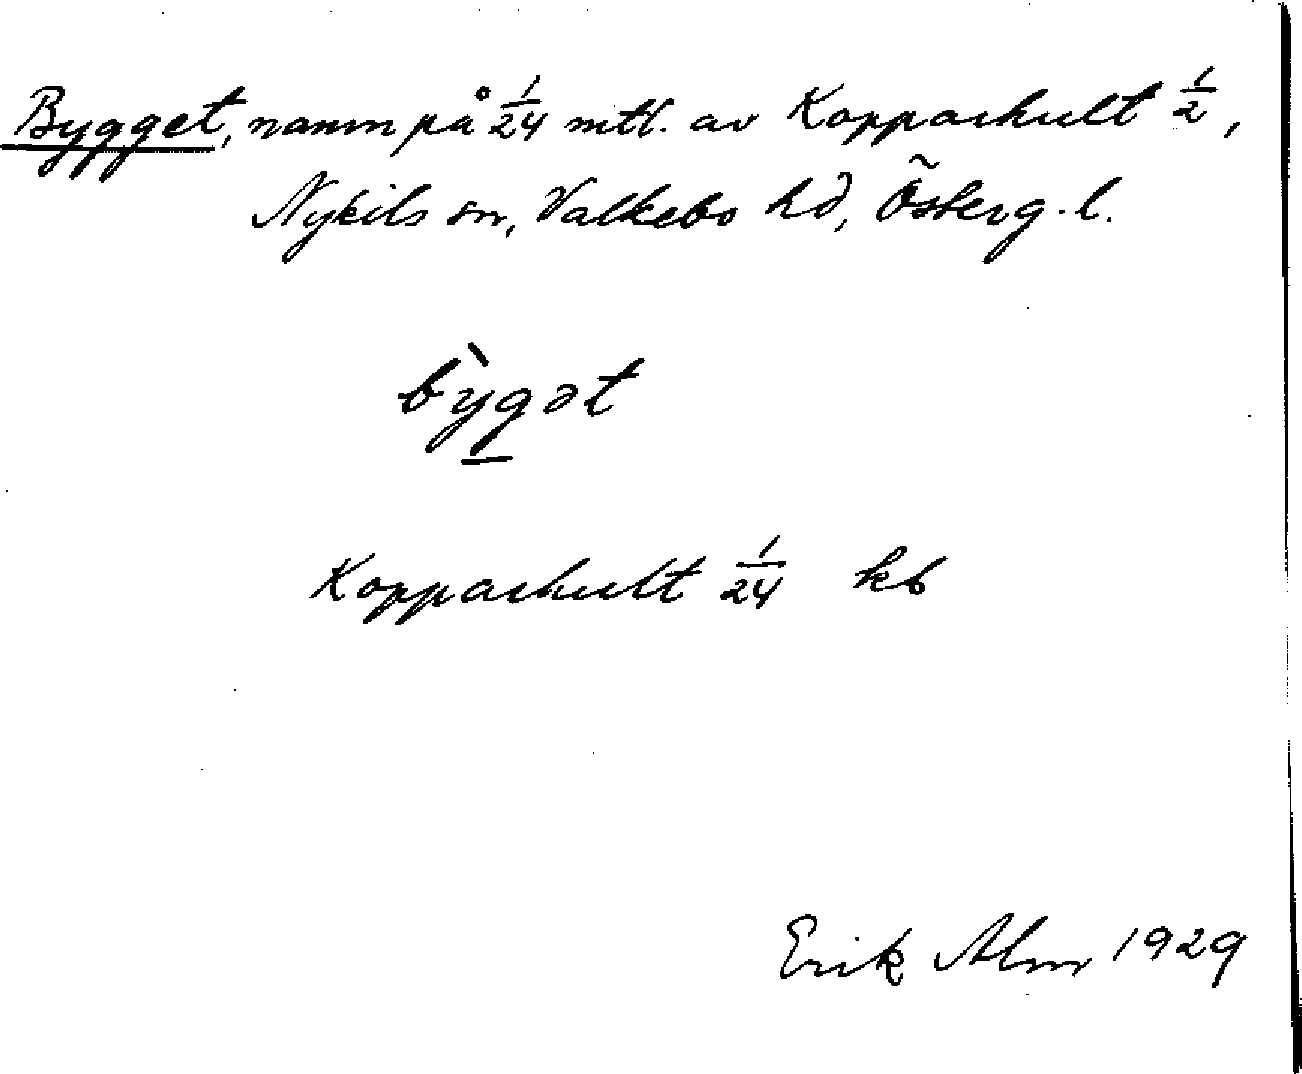 Bygget, namn på 1/24 mtl. av Kopparhult 1/2,
Nykils sn, Valkebo hd, Österg. l.
bỳg̲ət
Kopparhult 1/24 kb
Erik Alm 1929